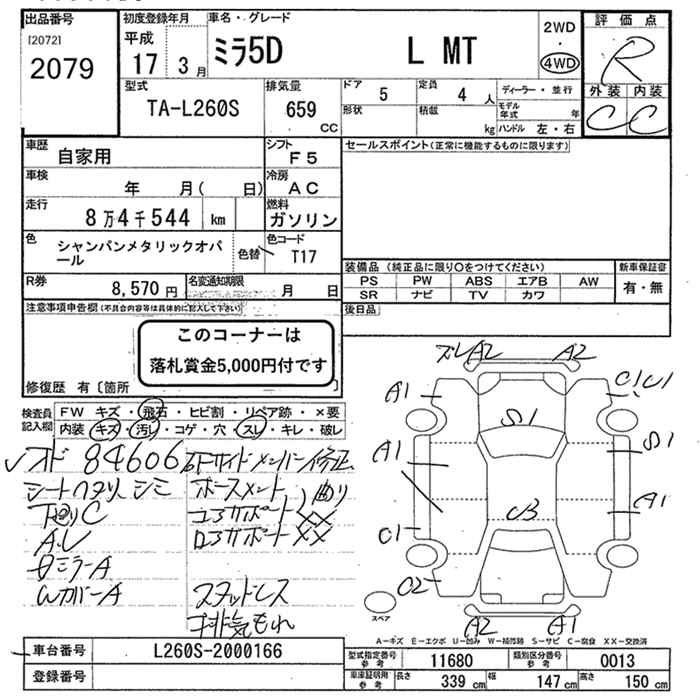 出品番号
[2072]
2079
初度登録年月
平成
17 3月
車名・グレード
ミラ5D L MT
2WD
・
4WD
評価点
R
外装 内装
C C
型式
TA-L260S
排気量
659
CC
ドア 5
形状
定員 4 人
積載 kg
ディーラー・並行
モデル年式 年
ハンドル 左・右
車歴
自家用
シフト
F5
車検
年 月( 日)
冷房
AC
走行
8万4千544 km
燃料
ガソリン
色
シャンパンメタリックオパール
色替
色コード
T17
R券
8,570 円
名変通知期限
月 日
セールスポイント(正常に機能するものに限ります)
装備品(純正品に限り○をつけてください)
新車保証書
PS PW ABS エアB AW
SR ナビ TV カワ
有・無
後日品
注意事項申告欄(不具合内容等は具体的に記入して下さい)
このコーナーは
落札賞金5,000円付です
修復歴 有〔箇所 〕
検査員
記入欄
FW キズ・飛石・ヒビ割・リペア跡・×要
内装 キズ・汚レ・コゲ・穴・スレ・キレ・破レ
84606
シートヘタリ、シミ
下回りC
スタットレス
排気もれ
ズレA2 A2
A1 C1 U1
S1
A1 S1
U3 A1
C1
C2
A2 A1
スペア
A―キズ E―エクボ U―凹み W―補修跡 S―サビ C―腐食 XX―交換済
車台番号 L260S-2000166
登録番号
型式指定番号 参考 11680
類別区分番号 参考 0013
車庫証明用 参考
長さ 339 cm
幅 147 cm
高さ 150 cm